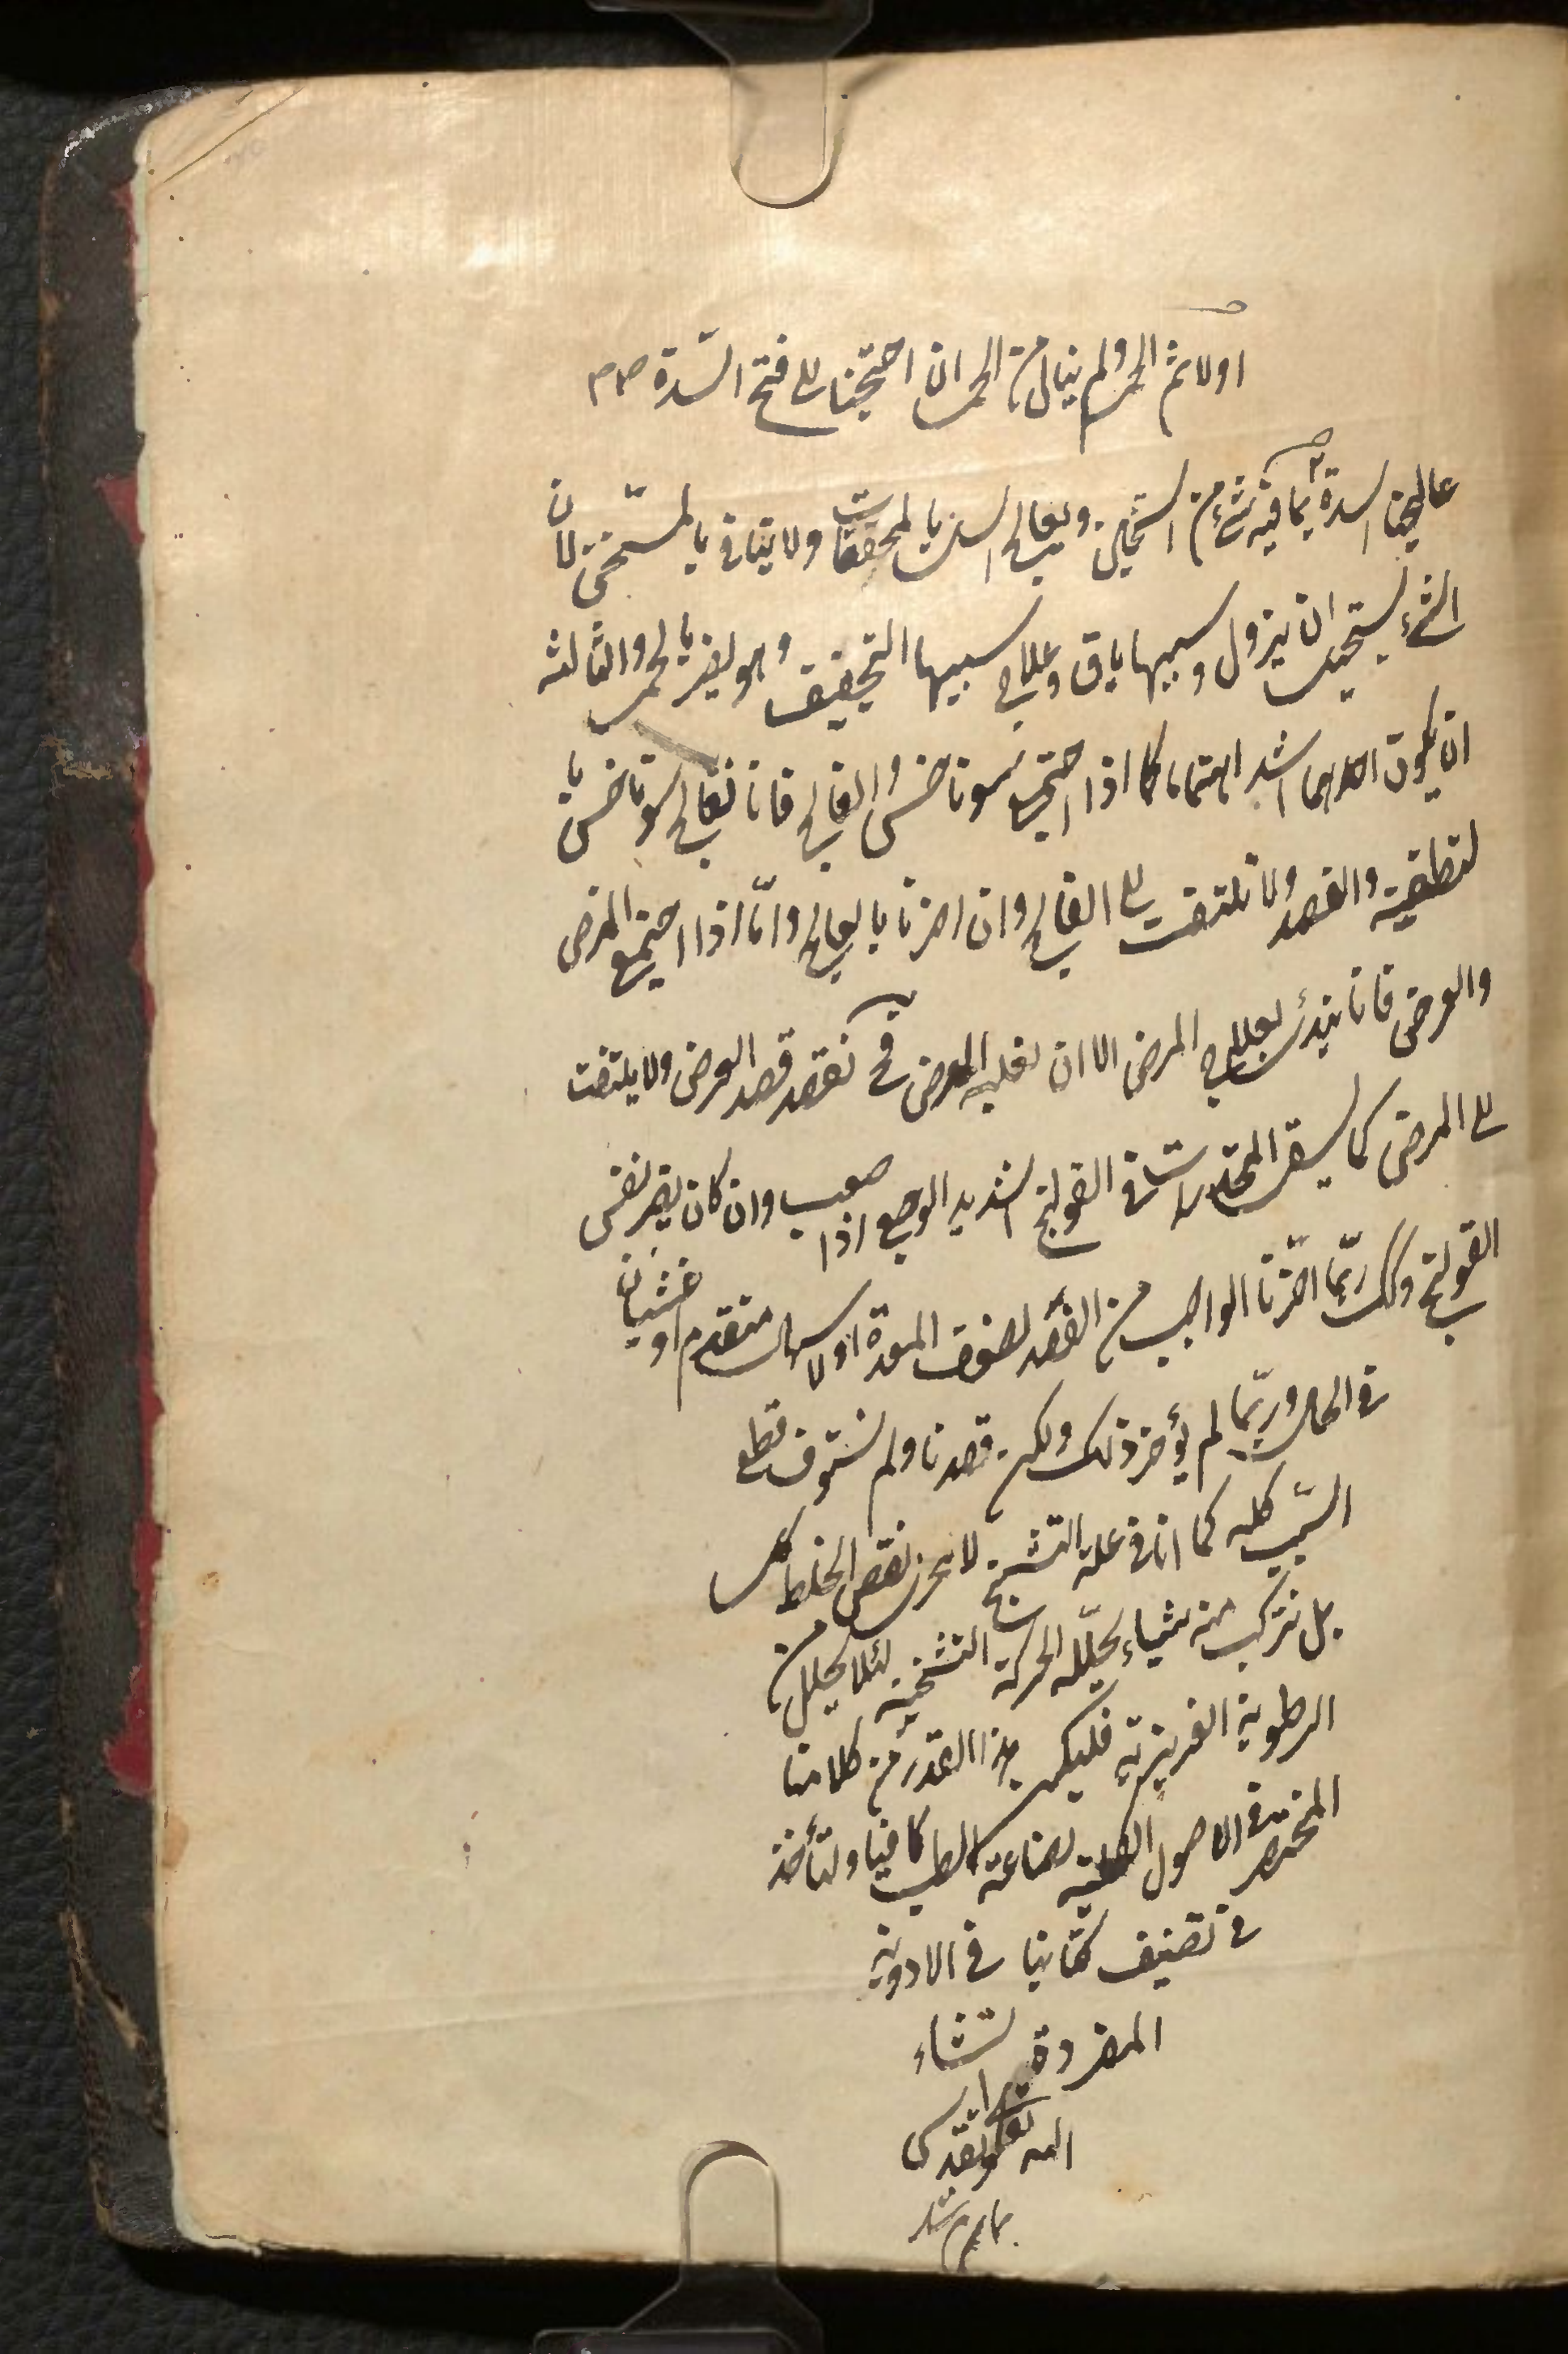 اولا ثم الحمى ولم ينال من الحمى ان احتجنا الى فتح السدة
عالجنا السدة ثم بما فيه شئ من التسخين ويعالج السل بالمجففات ولا يتاذى بالتسخين لان
الشئ يستحيل ان يزول وسببها باق وعلاج سببها التجفيف وهو يضر بالحمى والثالثه
ان يكون احدهما اشد اهتماما كما اذا اجتمع سوناخس والفالج فانا نعالج سوناخس با
لتطفيه والفصد ولا نلتفت الى الفالج وان اضرنا بالفالج وامّا اذا اجتمع المرض
والعرض فانا نبدئ بعلاج المرض الا ان يغلبه العرض فح نقصد قصد العرض ولا يلتفت
الى المرض كما يسقى المخدرات فى القولنج الشديد الوجع اذا صعب وان كان يضر نفس
القولنج وكك ربّما اخّرنا الواجب من الفصد لضعف المعدة او لاسهال متقدم او غشيان
فى الحال وربّما لم يؤخر ذلك ولكن قصدنا ولم نستوف قطع
السّبب كله كما انا فى علة التشنج لا نحرى نقص الخلط كله
بل نترك منه شياء يحلّله الحركة التشنجيّه لئلا يحلل من
الرطوبة الغريزية فليكن هذا القدر من كلامنا
المختصر فى الاصول الكلية لصناعة الطب كافيا ولنأخذ
فى تصنيف كتابنا فى الادوية
المفردة انشاء
الله تعالى وتقدس
تمام شد